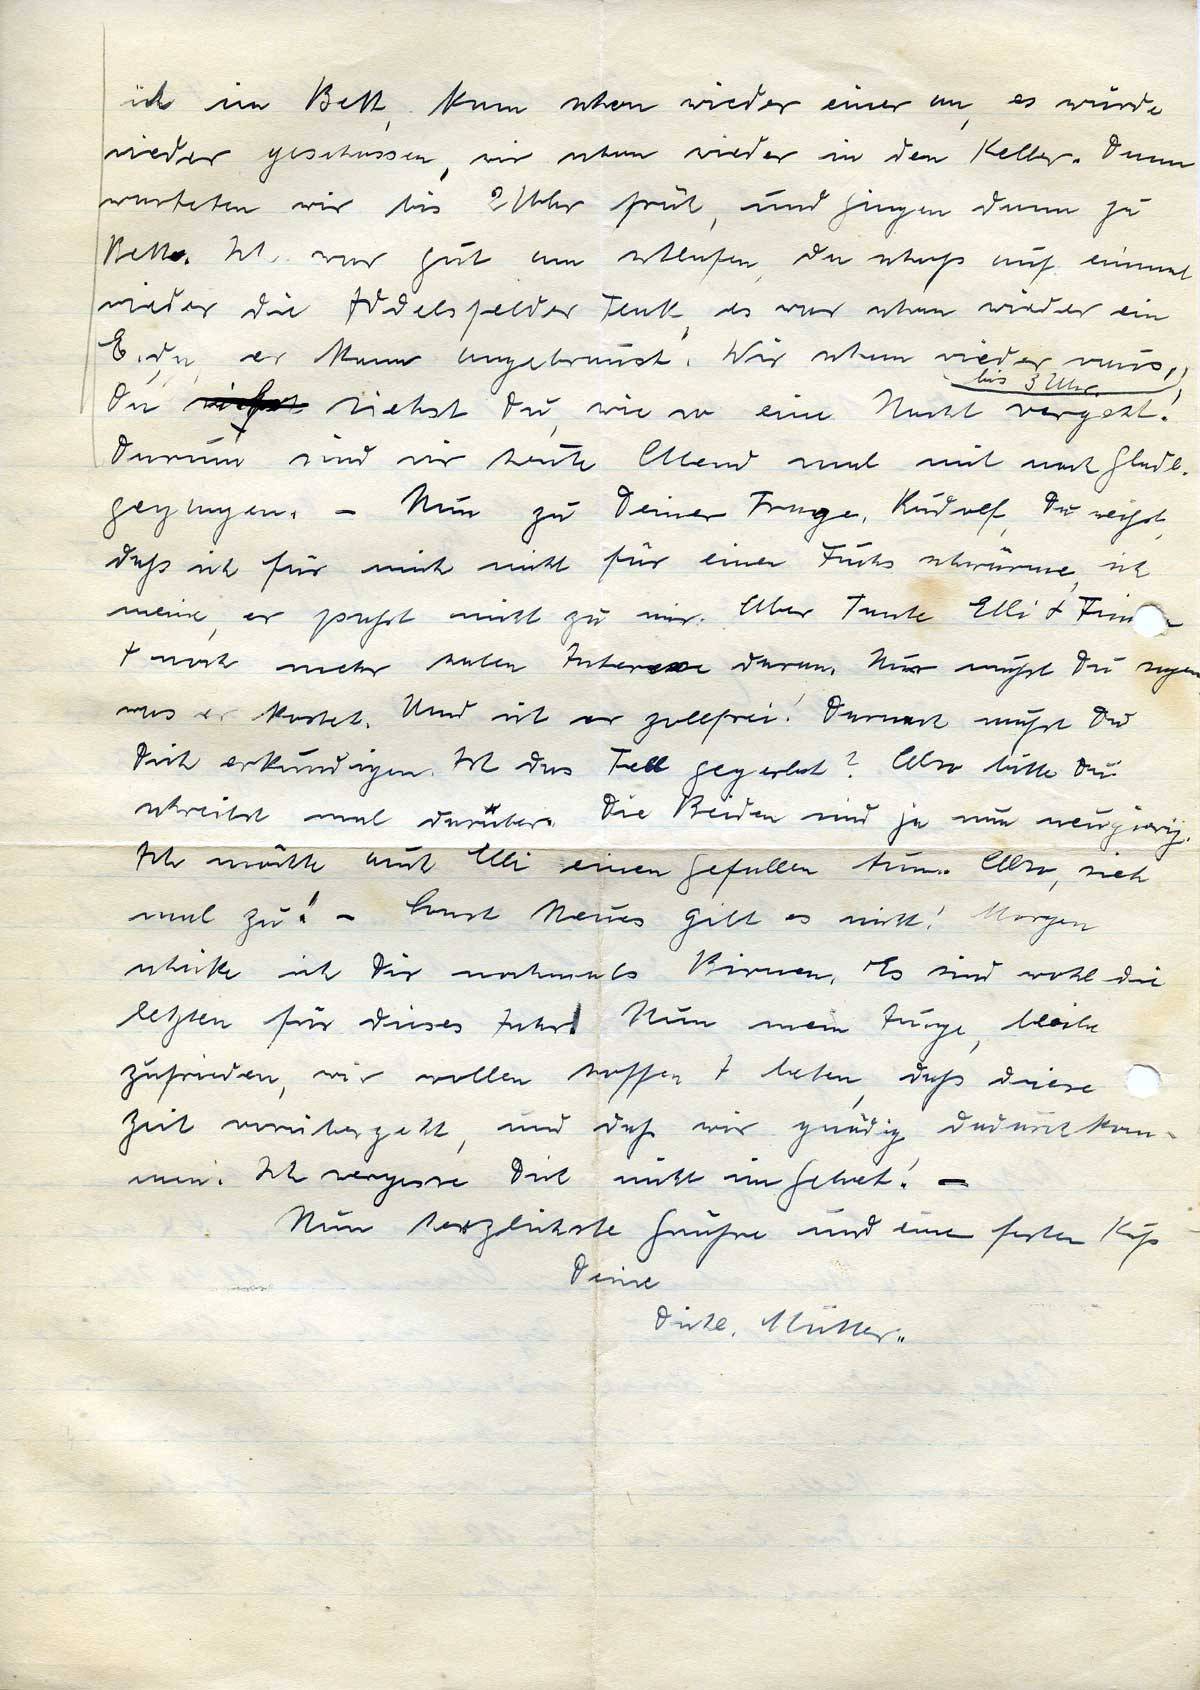 ich im Bett, kam schon wieder einer an, es wurde
wieder geschossen, wir schon wieder in den Keller. Dann
warteten wir bis 2 Uhr früh, und gingen dann zu
Bett. Ich war gut am schlafen, da schoss auf einmal
wieder die Iddelsfelder Flak, es war schon wieder ein
E. da, er kam angebraust. Wir schon wieder raus,
bis 3 Uhr.
Du siehst Du, wie so eine Nacht vergeht!
Darum sind wir heute Abend mal mit nach Gladb.
gegangen. – Nun zu Deiner Frage, Rudolf, Du weißt,
daß ich für mich nicht für einen Fuchs schwärme, ich
meine, er paßt nicht zu mir. Aber Tante Elli +
+ noch mehr haben Interesse daran. Nur mußt Du sagen
was er kostet. Und ist er zollfrei! Danach mußt Du
Dich erkundigen. Ist das Fell gegerbt? Also bitte Du
schreibst mal darüber. Die Beiden sind ja nun neugierig.
Ich möchte auch Elli einen Gefallen tun. Also, sieh
mal zu! – Sonst Neues gibt es nicht! Morgen
schicke ich Dir nochmals Birnen. Es sind wohl die
letzten für dieses Jahr! Nun mein Junge, bleibe
zufrieden, wir wollen hoffen + beten, daß diese
Zeit vorübergeht, und daß wir gnädig dadurch kom-
men. Ich vergesse Dich nicht im Gebet! –
Nun herzlichste Grüße und einen festen Kuß
Deine
Dichl. Mutter.